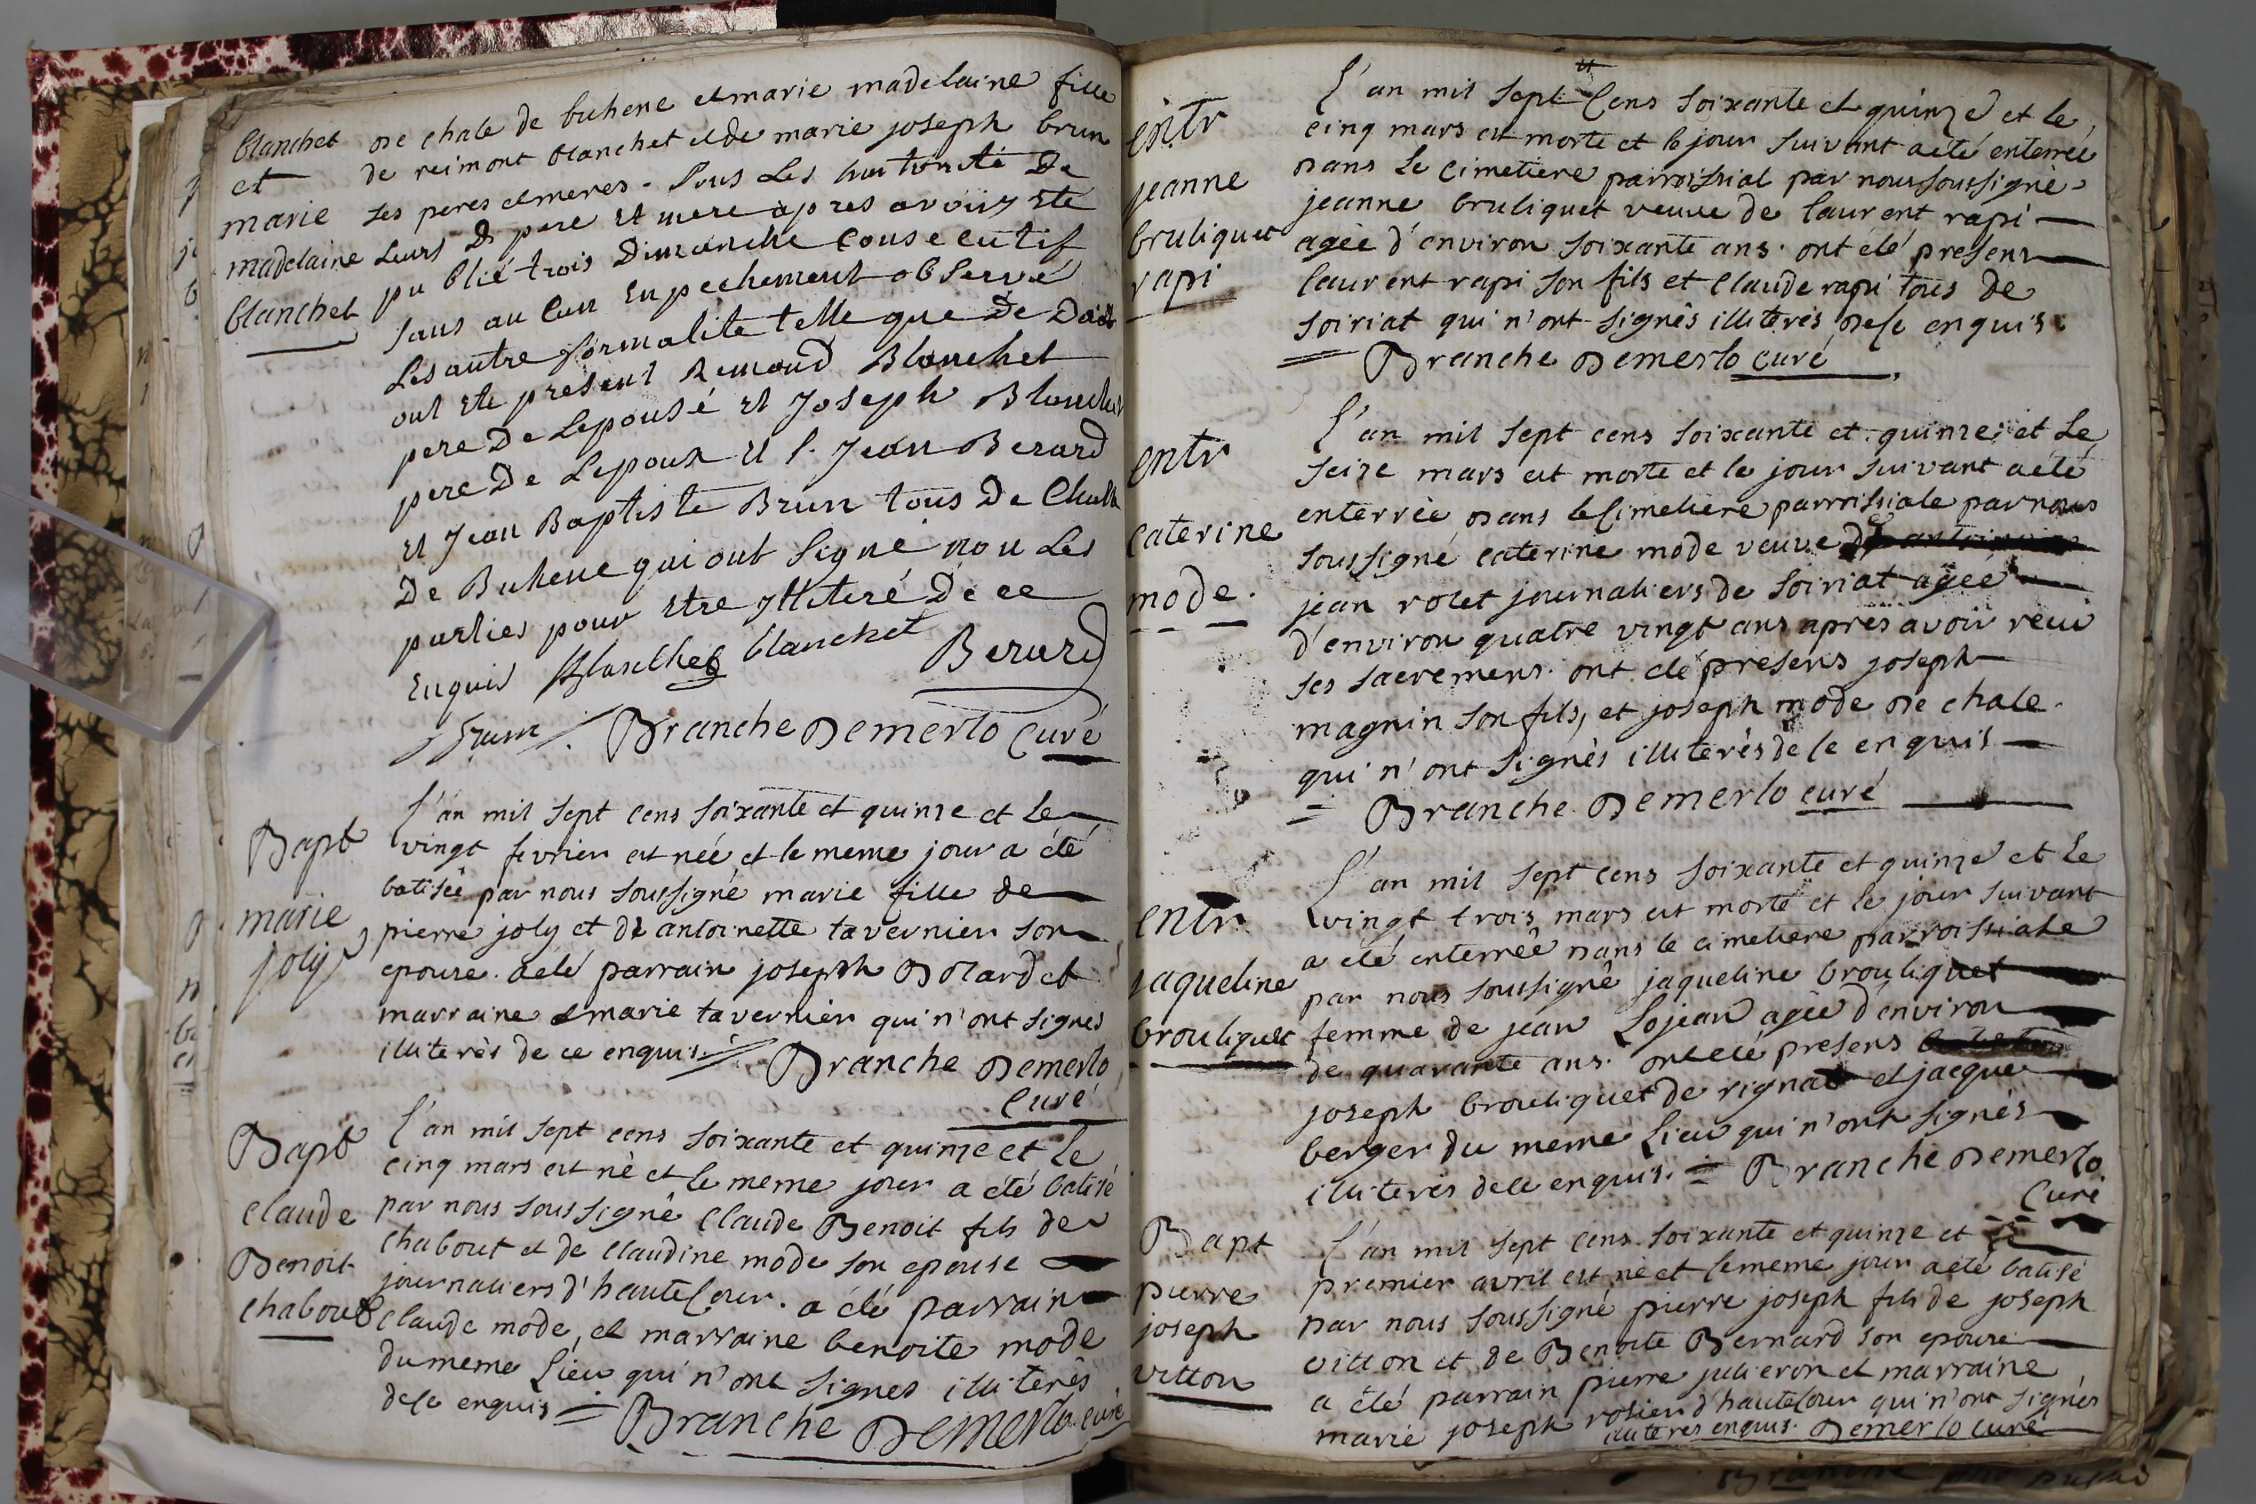 blanchet
et
marie
madelaine
blanchet
de chale de buhene et marie madelaine fille
de reimont blanchet et de marie joseph brun
ses peres et meres. sous Les hautorité De
Leurs D pere et mere apres avoiry Ete
pu blié trois Dimanche Consecutif
sans au Cun Enpechement observé
Les autre formalite telle que De Doit
ont Ete present Remond Blanchet
pere De Lepousé et Joseph Blanchet
pere De Lepoux et S. Jean Berard
et Jean Baptiste Brun tous De Challe
De Buhene qui ont Signé non Les
parties pour Etre yllitere De ce
Enquis Blanchet blanchet
Berard
Brun Branche Demerlo Curé
Bapt
marie
joly
L'an mil sept cens soixante et quinze et le
vingt fevrier est née et le meme jour a été
batisée par nous soussigné marie fille de
pierre joly et de antoinette tavernier son
epouse. a eté parrain joseph Bolard et
marraine et marie tavernier qui n'ont signes
illiterés de ce enquis. Branche Demerlo
Curé
Bapt
claude
Benoit
chabout
L'an mil sept cens soixante et quinze et Le
cinq mars est né et le meme jour a été batisé
par nous soussigné Claude Benoit fils de
chabout et de Claudine mode son epouse
journaliers d'hautecour. a été parrain
Claude mode, et marraine benoite mode
du meme Lieu qui n'ont signes illiterés
de ce enquis = Branche Demerlo curé
entr
jeanne
bruliquet
rapi
L'an mil sept Cens soixante et quinze et le
cinq mars est morte et le jour suivant a été enterrée
dans Le cimetiere parroissial par nous soussigné
jeanne bruliquet veuve de laurent rapi
agée d'environ soixante ans. ont été presens
laurent rapi son fils et Claude rapi tous de
soiriat qui n'ont signés illiterés de ce enquis
= Branche Demerlo curé
entr
caterine
mode.
L'an mil sept cens soixante et quinze et Le
seize mars est morte et le jour suivant a eté
enterrée dans le Cimetiere parroissiale par nous
soussigné caterine mode veuve de
jean rolet journaliers de soiriat agée
d'environ quatre vingt ans apres avoir reçu
ses sacremens. ont eté presens joseph
magnin son fils, et joseph mode de chale.
qui n'ont signés illiterés de ce enquis
= Branche Demerlo curé
entr
jaqueline
brouliquet
L'an mil sept cens soixante et quinze et Le
vingt trois mars est morte et le jour suivant
a été enterrée dans le cimetiere parroissiale
par nous soussigné jaqueline brouliquet
femme de jean Lojean agée d'environ
de quarante ans. ont eté presens
joseph brouliquet de rignat et jacque
berger du meme Lieu qui n'ont signés
illiterés de ce enquis. = Branche Demerlo
Curé
Bapt
pierre
joseph
vitton
L'an mil sept cens soixante et quinze et le
premier avril est né et le meme jour a eté batisé
par nous soussigné pierre joseph fils de joseph
vitton et de Benoite Bernard son epouse
a été parrain pierre julieron et marraine
marie joseph rosier d'hautecour qui n'ont signés
illiterés enquis. Demerlo curé